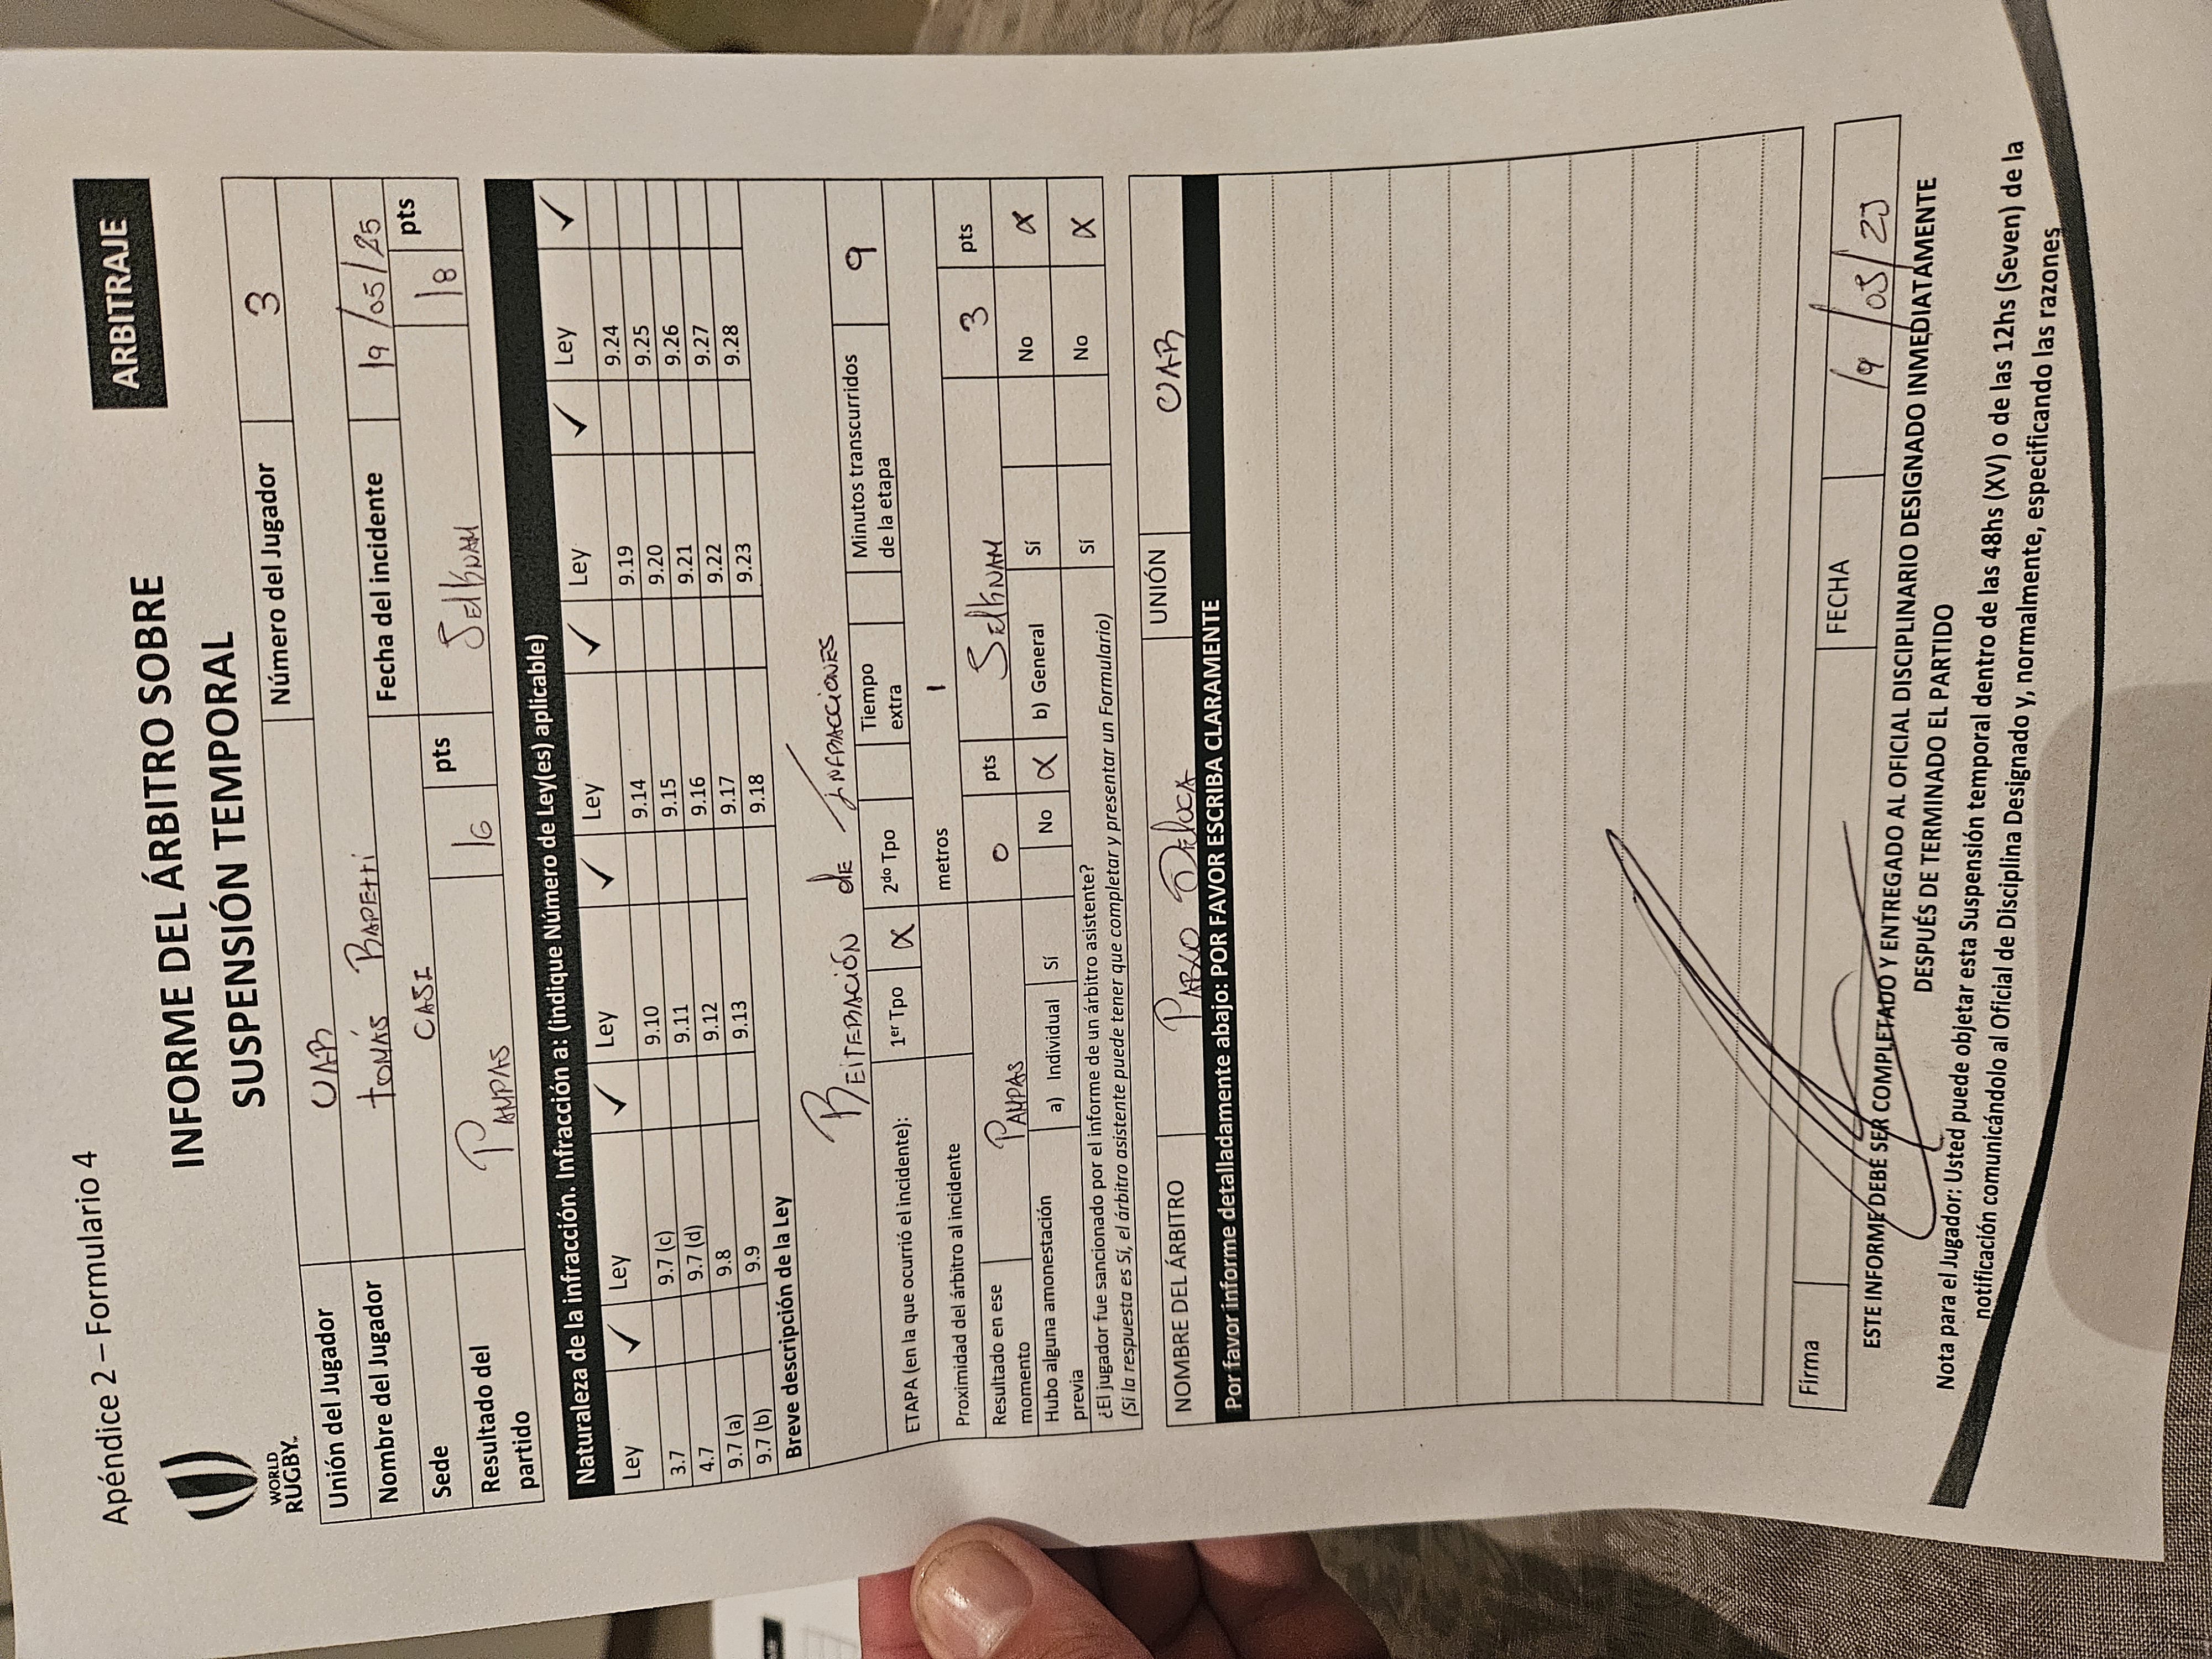 Apéndice 2 – Formulario 4
ARBITRAJE
WORLD RUGBY™
INFORME DEL ÁRBITRO SOBRE
SUSPENSIÓN TEMPORAL
Unión del Jugador UAR Número del Jugador 3
Nombre del Jugador TOMÁS RAPETTI Fecha del incidente 19/05/25
Sede CASI
Resultado del partido PAMPAS 16 pts SELKNAM 18 pts
Naturaleza de la infracción. Infracción a: (indique Número de Ley(es) aplicable)
Ley ✓ Ley ✓ Ley ✓ Ley ✓ Ley ✓ Ley ✓
3.7 9.7 (c) 9.10 9.14 9.19 9.24
4.7 9.7 (d) 9.11 9.15 9.20 9.25
9.7 (a) 9.8 9.12 9.16 9.21 9.26
9.7 (b) 9.9 9.13 9.17 9.22 9.27
9.18 9.23 9.28
Breve descripción de la Ley
REITERACIÓN DE INFRACCIONES
ETAPA (en la que ocurrió el incidente): 1er Tpo X 2do Tpo Tiempo extra Minutos transcurridos de la etapa 9
Proximidad del árbitro al incidente metros 1
Resultado en ese momento PAMPAS 0 pts SELKNAM 3 pts
Hubo alguna amonestación previa a) Individual Sí No X b) General Sí No X
¿El jugador fue sancionado por el informe de un árbitro asistente? Sí No X
(Si la respuesta es Sí, el árbitro asistente puede tener que completar y presentar un Formulario)
NOMBRE DEL ÁRBITRO PABLO DELUCA UNIÓN UAR
Por favor informe detalladamente abajo: POR FAVOR ESCRIBA CLARAMENTE
Firma FECHA 19/05/25
ESTE INFORME DEBE SER COMPLETADO Y ENTREGADO AL OFICIAL DISCIPLINARIO DESIGNADO INMEDIATAMENTE
DESPUÉS DE TERMINADO EL PARTIDO
Nota para el Jugador: Usted puede objetar esta Suspensión temporal dentro de las 48hs (XV) o de las 12hs (Seven) de la
notificación comunicándolo al Oficial de Disciplina Designado y, normalmente, especificando las razones